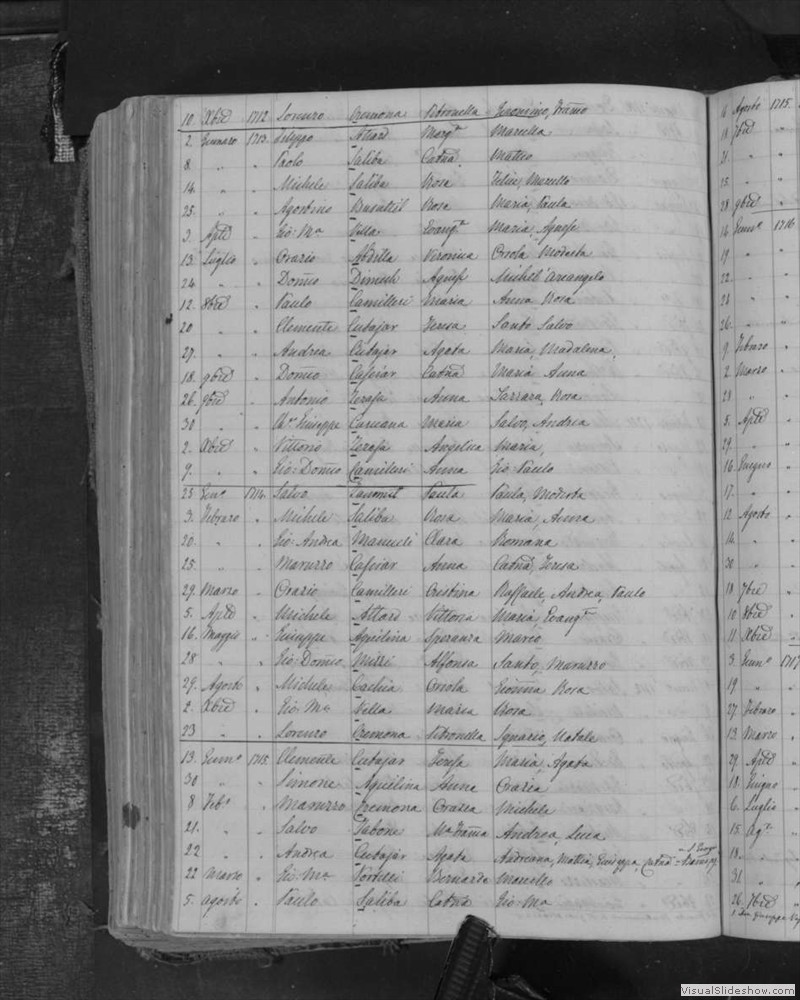 10. Xbre 1712 Lorenzo Cremona Petronella Jeronimo,
2. Gennaro 1713 Filippo Attard Margta Marcella
8 " " Paolo Saliba Catna Matteo
14. " " Michele Saliba Rosa Felice, Marcello
25. " " Agostino Busuttil Rosa Maria, Paula
3. Aple " Gio: Ma Villa Evangta Maria, Agnese
13. Luglio " Orazio Abdilla Veronica Oriola Modesta
24 " " Domco Dimech Agnese Michel'Arcangelo
12. 8bre " Paulo Camilleri Maria Anna Rosa
20 " " Clemente Cutajar Teresa Santo Salvo
27. " " Andrea Cutajar Agata Maria, Madalena,
18. 9bre " Domco Catna Maria Anna
26. 9bre " Antonio Zerafa Anna Rosa
30 " " Giuseppe Caruana Maria Salvo, Andrea
2. Xbre " Vittorio Zerafa Angelica Maria,
9. " " Gio: Domco Camilleri Anna Gio: Paulo
23 Genno 1714. Salvo Paula Paula, Modesta
3. Febraro " Michele Saliba Rosa Maria, Anna
20. " " Gio: Andrea Clara Romana
25. " " Maruzzo Anna Catna, Teresa
29. Marzo " Orazio Camilleri Cristina Raffaele, Andrea, Paulo
5. Aple " Michele Attard Vittoria Maria, Evangta
16. Maggio " Giuseppe Aquilina Speranza Mario
28 " " Gio: Domco Mizzi Alfonsa Santo, Maruzzo
29. Agosto " Michele Cachia Oriola Rosa
2. Xbre " Gio: Ma Villa Maria Rosa
23 " " Lorenzo Cremona Petronella Ignazio, Natale
13. Genno 1715 Clemente Cutajar Teresa Maria, Agata
30 " " Simone Aquilina Anna Orazia
8 Febo " Maruzzo Cremona Orazia Michele
21. " " Salvo Tabone Ma Andrea, Luca
22 " " Andrea Cutajar Agata Adriana, Mattia, Giuseppa, Catna
22 Marzo " Gio: Ma Bernarda Marcello
5. Agosto " Paulo Saliba Catna Gio: Ma
6 Agosto 1715.
18 7bre "
21. " "
25. " "
28 9bre "
16 Genno 1716
19 " "
22. " "
24 " "
26. " "
9. Febraro "
2 Marzo "
28 " "
5. Aple "
29. " "
16. Giugno "
17. " "
12 Agosto "
14. " "
30 " "
18 7bre "
10 8bre "
11 Xbre "
3. Genno 1717
19 " "
27 Febraro "
13 Marzo "
29 Aple "
18. Giugno "
6. Luglio "
15 Ago "
18. " "
31 " "
26. 7bre "
VisualSlideshow.com